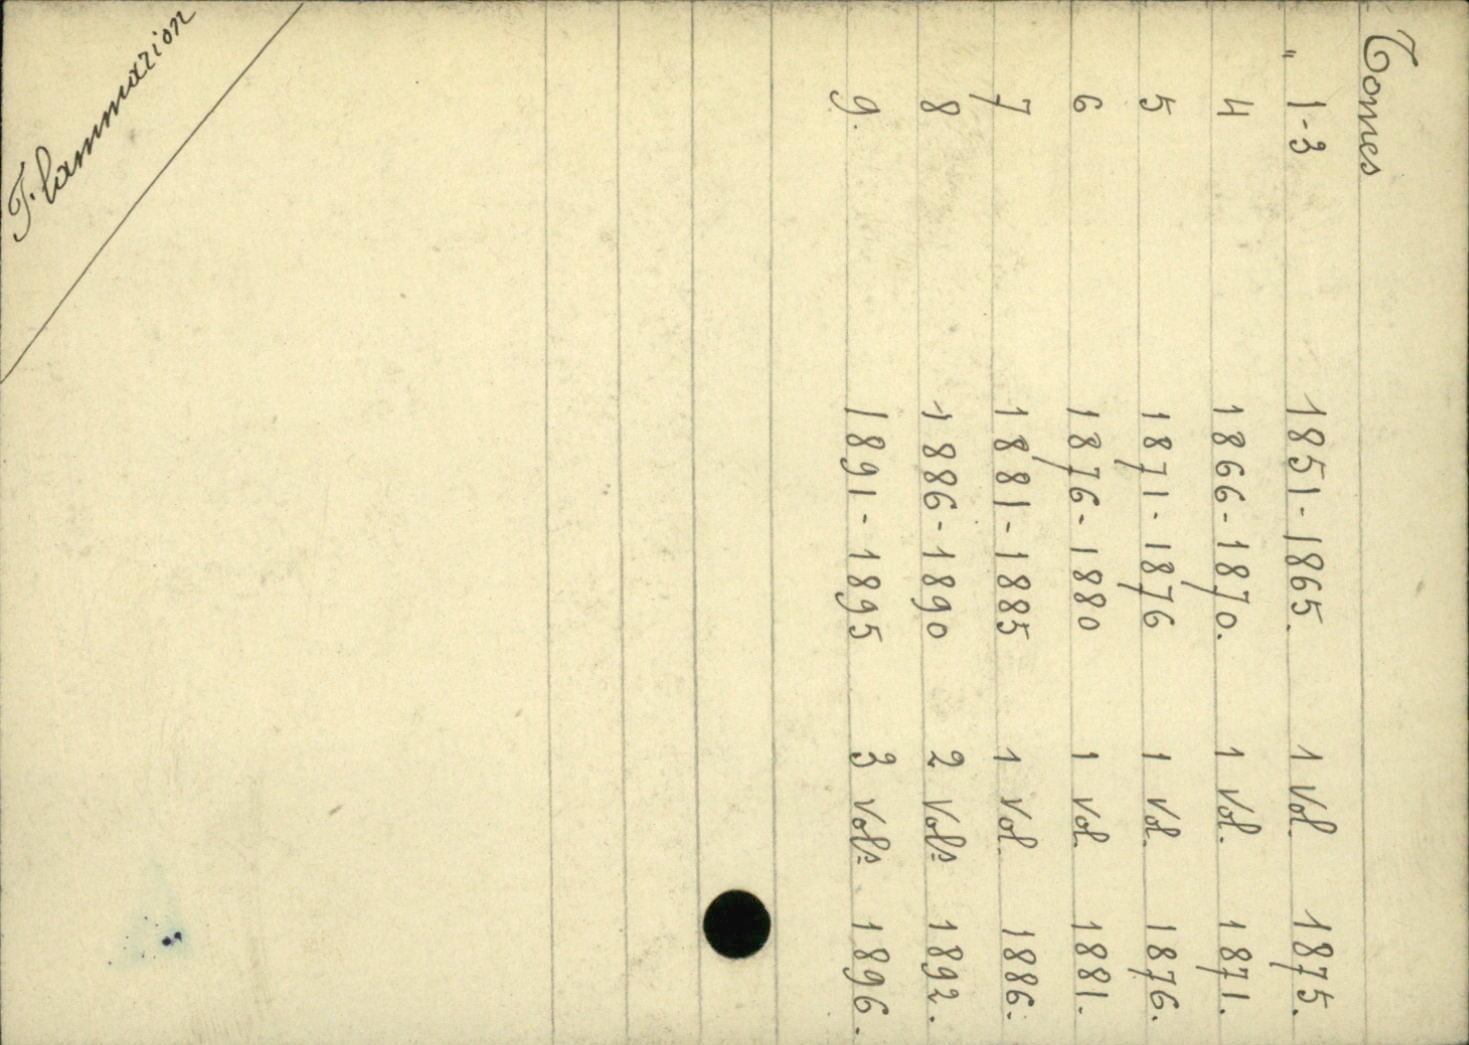 Tomes
" 1-3 1851-1865. 1 Vol. 1875.
4 1866-1870. 1 Vol. 1871.
5 1871-1876 1 Vol. 1876.
6 1876-1880 1 Vol. 1881.
7 1881-1885 1 Vol. 1886.
8 1886-1890 2 Vols 1892.
9. 1891-1895 3 Vols. 1896.
Flammarion